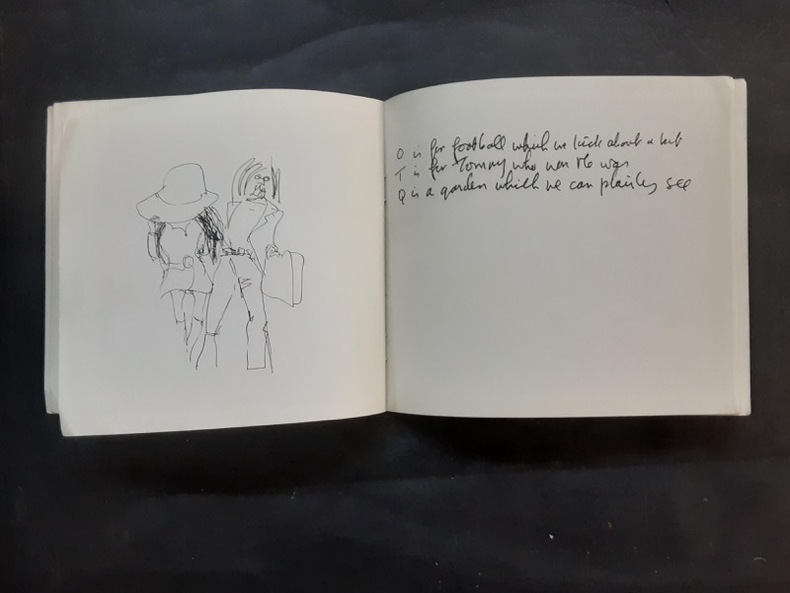 O is for football which we kick about a bit
T is for Tommy who won the war
Q is a garden which we can plainly see